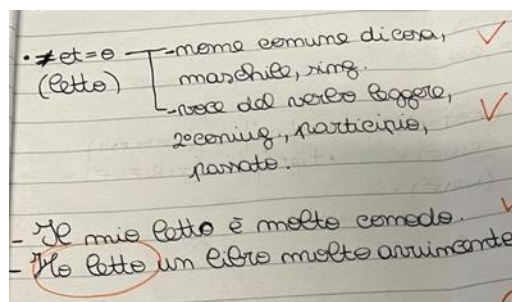 • ≠et=o - nome comune di cosa,
(letto) maschile, sing.
- voce del verbo leggere,
2ªconiug, participio,
passato.
- Il mio letto è molto comodo.
- Ho letto un libro molto avvincente